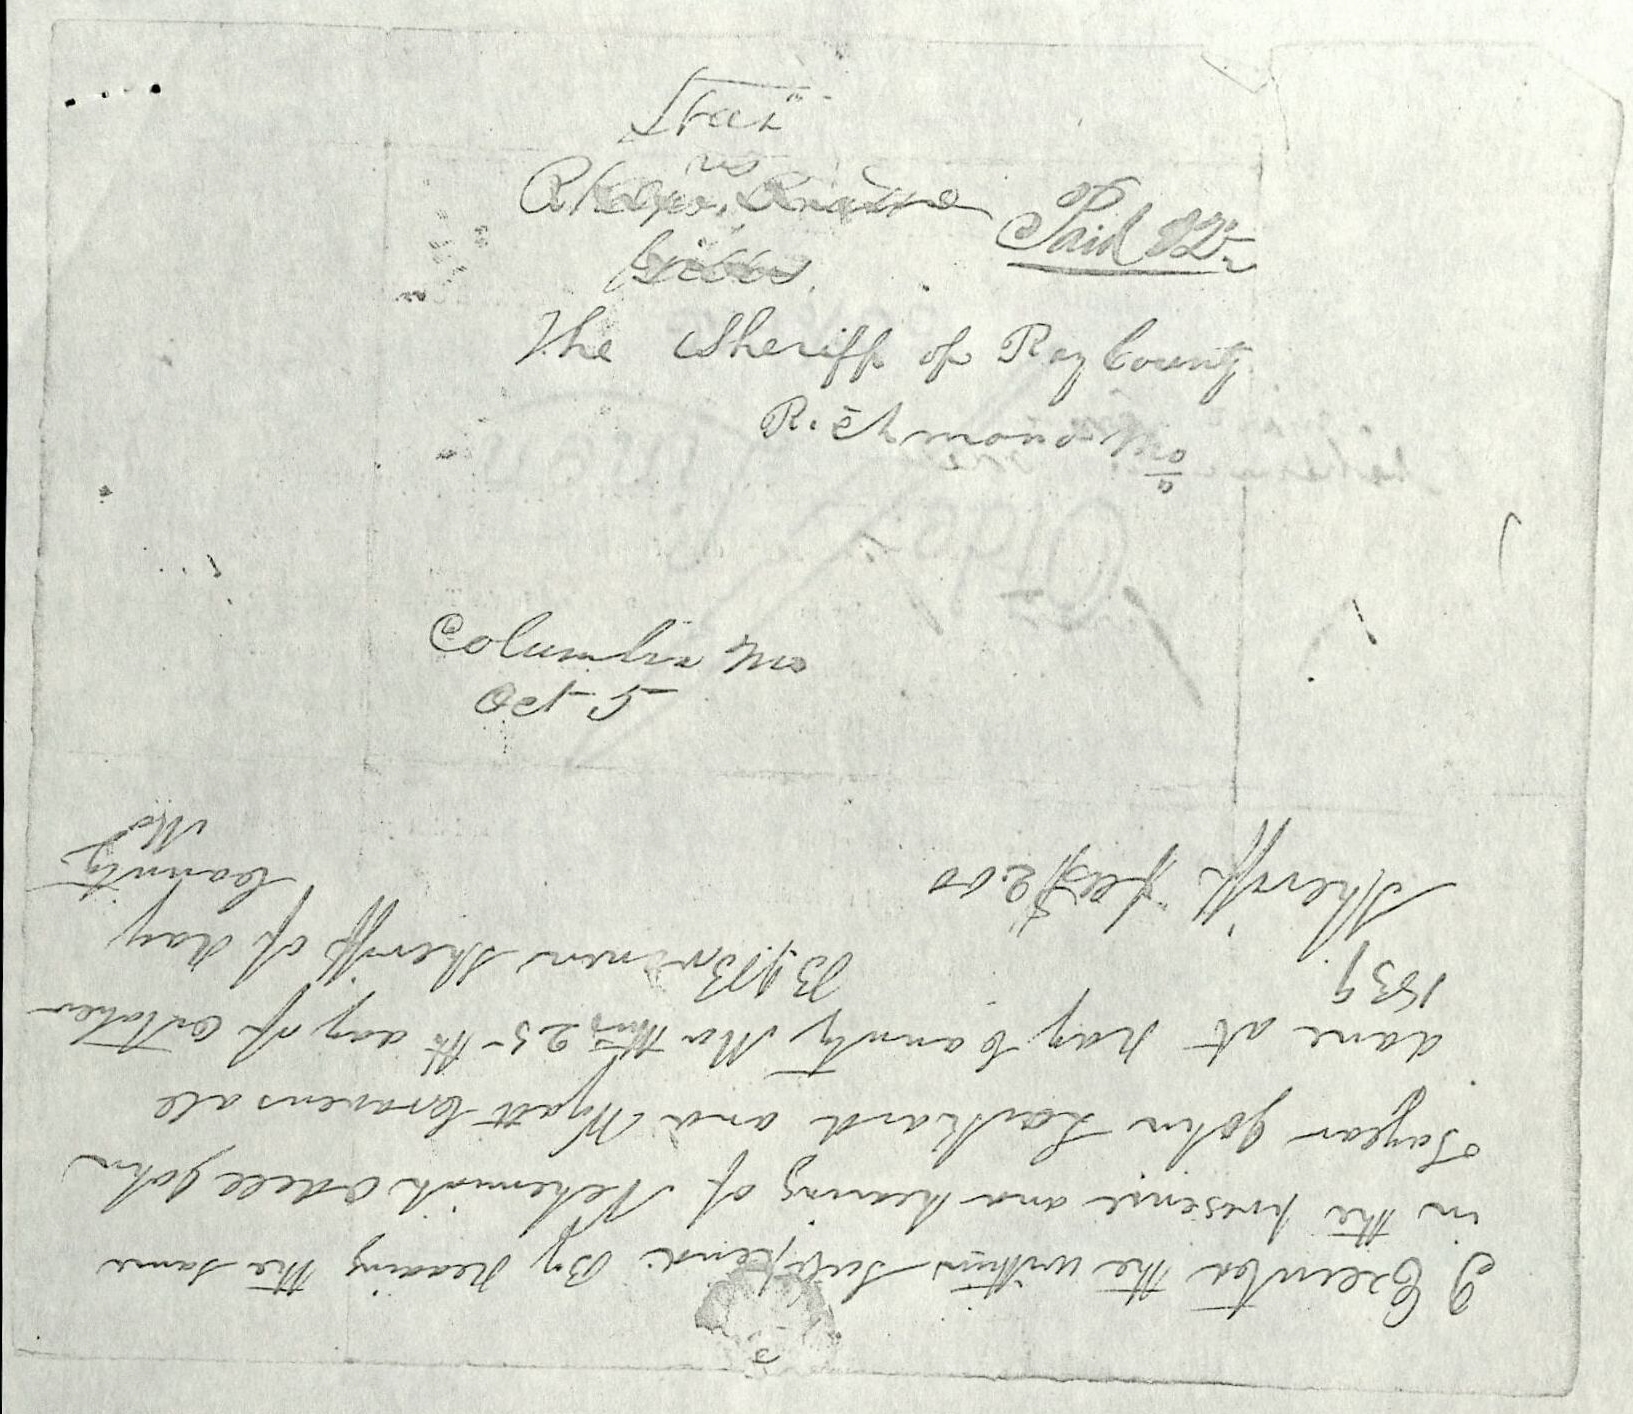 State
on
Paid 12½
The Sheriff of Ray County
Richmond Mo
Columbia Mo
Oct 5
I Executed the within Subpena By Reading the same
in the presense and hearing of Nehemiah Odell John
John Lockard and Wyatt Cravens all
done at Ray County Mo this 25th day of october
1839
Sheriff of Ray
County
Mo
Sheriff fees $2.00